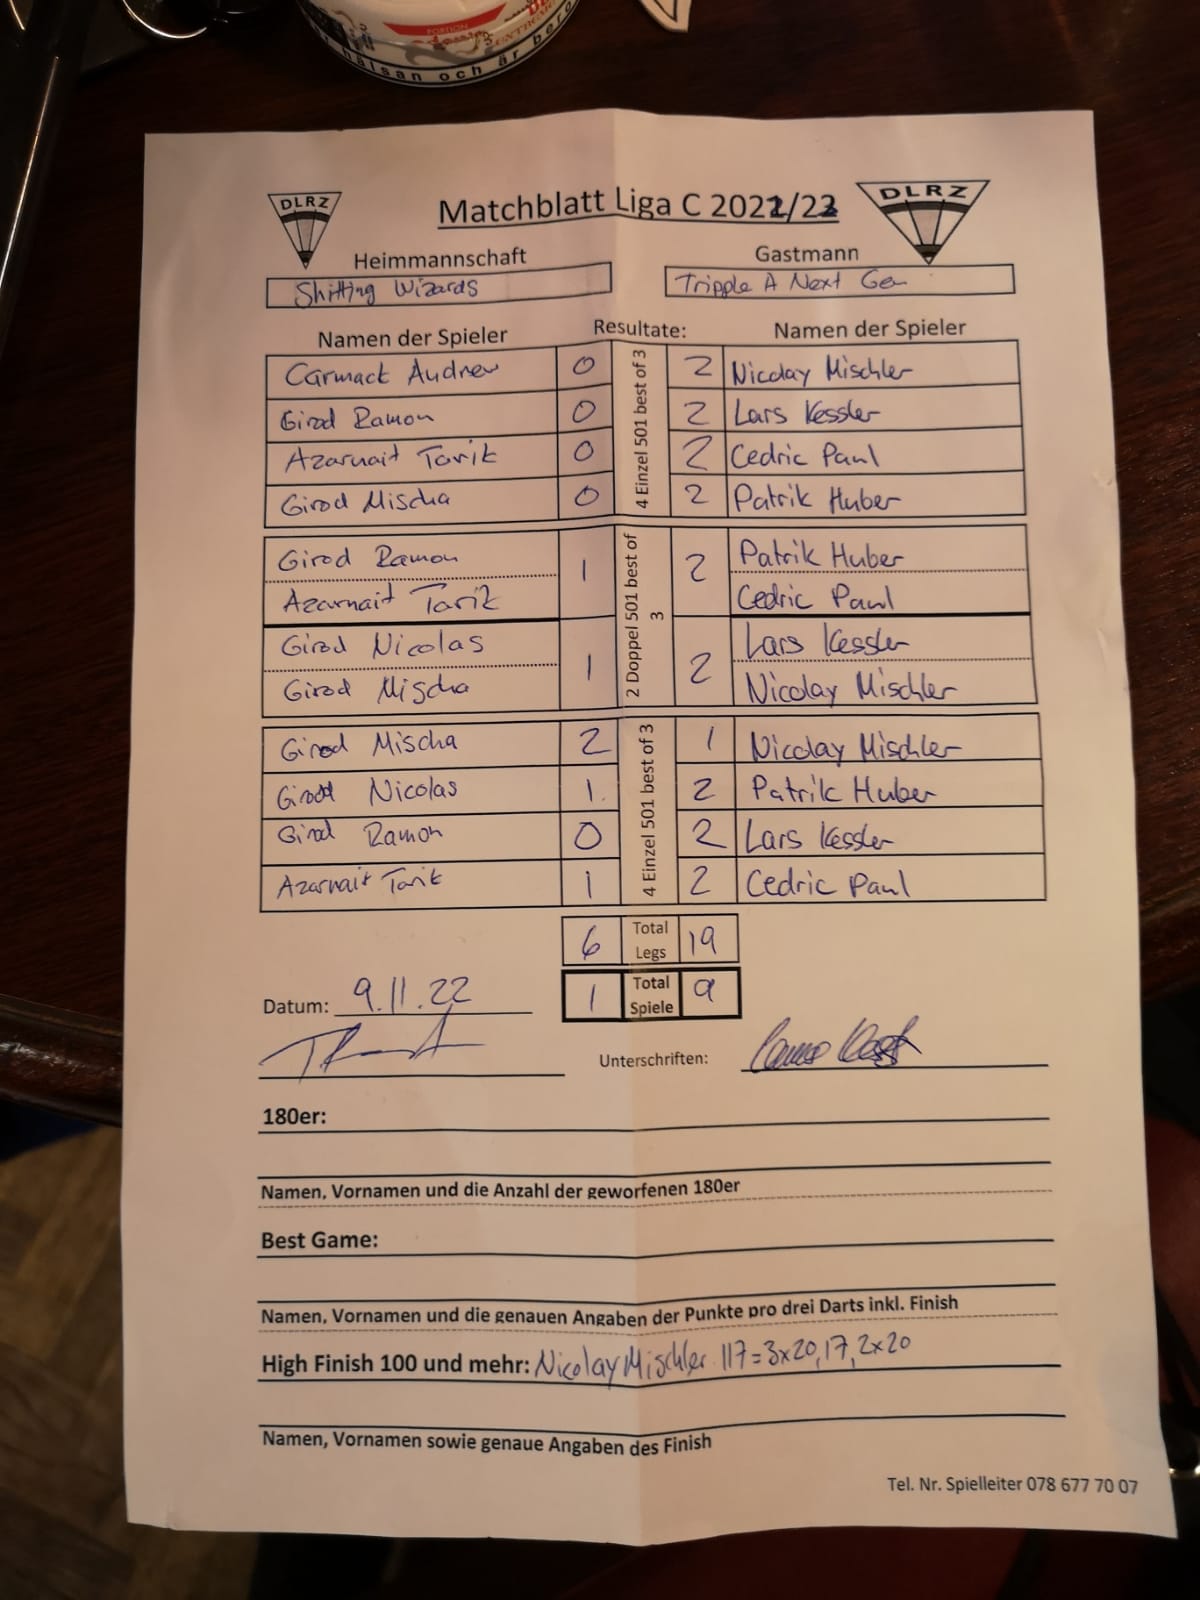 PORTION
hälsan och är bero
DLRZ
Matchblatt Liga C 2022/23
DLRZ
Heimmannschaft Gastmann
Shitting Wizards Tripple A Next Gen
Namen der Spieler Resultate: Namen der Spieler
4 Einzel 501 best of 3
Carmack Andrew 0 2 Nicolay Mischler
Girod Ramon 0 2 Lars Kessler
Azarnait Tarik 0 2 Cedric Paul
Girod Mischa 0 2 Patrik Huber
2 Doppel 501 best of 3
Girod Ramon 1 2 Patrik Huber
Azarnait Tarik Cedric Paul
Girod Nicolas 1 2 Lars Kessler
Girod Mischa Nicolay Mischler
4 Einzel 501 best of 3
Girod Mischa 2 1 Nicolay Mischler
Girod Nicolas 1. 2 Patrik Huber
Girod Ramon 0 2 Lars Kessler
Azarnait Tarik 1 2 Cedric Paul
6 Total Legs 19
Datum: 9.11.22 1 Total Spiele 9
Unterschriften:
180er:
Namen, Vornamen und die Anzahl der geworfenen 180er
Best Game:
Namen, Vornamen und die genauen Angaben der Punkte pro drei Darts inkl. Finish
High Finish 100 und mehr: Nicolay Mischler 117=3x20,17,2x20
Namen, Vornamen sowie genaue Angaben des Finish
Tel. Nr. Spielleiter 078 677 70 07